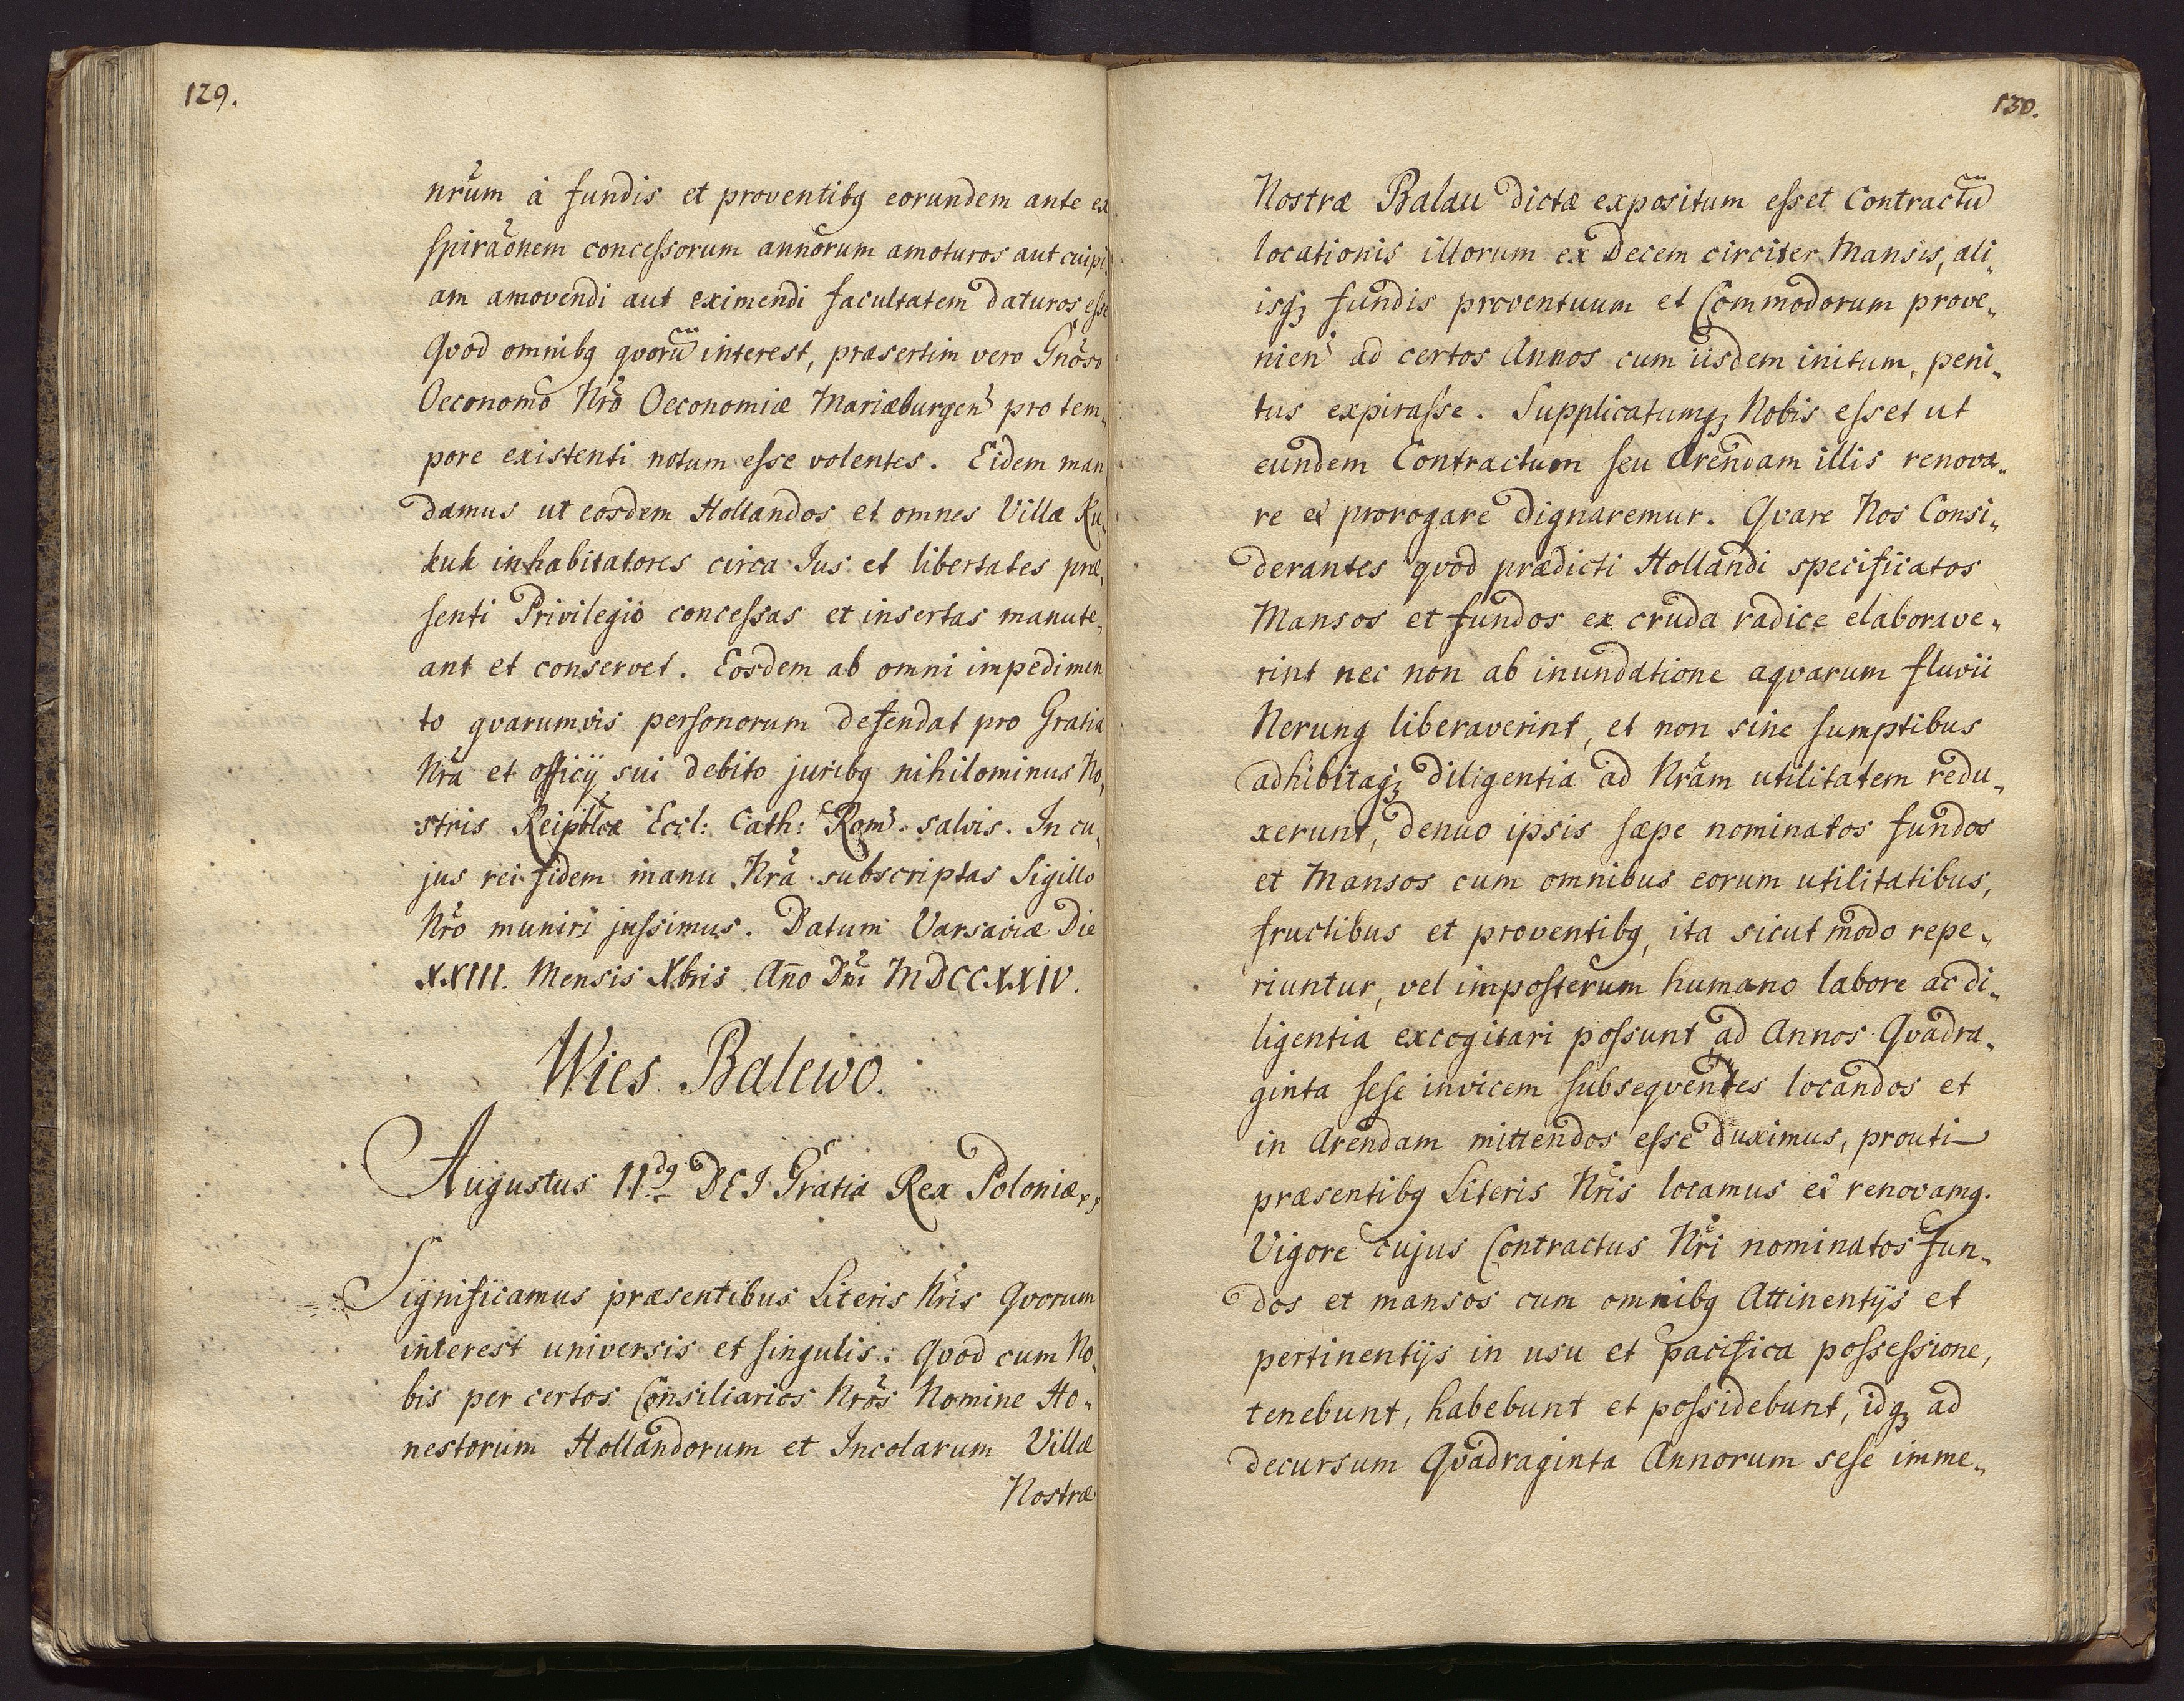 129.
nr̃um à fundis et proventibq eorundem ante ex
spirãonem concessorum annorum amoturos aut cuipi
am amovendi aut eximendi facultatem daturos esse
Qvod omnibq qvorũ interest, præsertim vero Gnõso
Oeconomo Nrõ Oeconomiæ Mariæburgen̄ pro tem„
pore existenti notum esse volentes. Eidem man
damus ut eosdem Hollandos et omnes Villæ Ku„
kuk inhabitatores circa Jus et libertates præ„
senti Privilegio concessas et insertas manute„
ant et conservet. Eosdem ab omni impedimen
to qvarumvis personorum defendat pro Gratia
Nrã et officij sui debito juribq nihilominus No„
stris Reipblcæ Eccl: Cath: Rom. salvis. In cu„
jus rei fidem manu Nrã subscriptas Sigillo
Nrõ muniri jussimus. Datum Varsaviæ Die
XXIII. Mensis Xbris Año Dni MDCCXXIV.
Wies Balewo.
Augustus II.dq DEI Gratia Rex Poloniæ
Significamus præsentibus Literis Nris̃ Qvorum
interest universis et singulis: Qvod cum No„
bis per certos Consiliarios Nrõs Nomine Ho„
nestorum Hollandorum et Incolarum Villæ
Nostræ
130.
Nostræ Balau dictæ expositum esset Contractũ
locationis illorum ex Decem circiter Mansis, ali„
isqȝ fundis proventuum et Commodorum prove„
nien̄ ad certos Annos cum iisdem initum, peni„
tus expirasse. Supplicatumqȝ Nobis esset ut
eundem Contractum seu Arendam illis renova„
re et prorogare dignaremur. Qvare Nos Consi„
derantes qvod prædicti Hollandi specificatos
Mansos et fundos ex cruda radice elaborave„
rint nec non ab inundatione aqvarum fluvii
Nerung liberaverint, et non sine sumptibus
adhibitaqȝ diligentia ad Nrãm utilitatem redu„
xerunt, denuo ipsis sæpe nominatos fundos
et Mansos cum omnibus eorum utilitatibus,
fructibus et proventibq, ita sicut modo repe„
riuntur, vel imposterum humano labore ac di„
ligentia excogitari possunt ad Annos Qvadra„
ginta sese invicem subseqventes locandos et
in Arendam mittendos esse duximus, prouti
præsentibq Literis Nris̃ locamus et renovamq.
Vigore cujus Contractus Nrĩ nominatos fun„
dos et mansos cum omnibq Attinentijs et
pertinentijs in usu et pacifica possessione,
tenebunt, habebunt et possidebunt, idqȝ ad
decursum Qvadraginta Annorum sese imme„